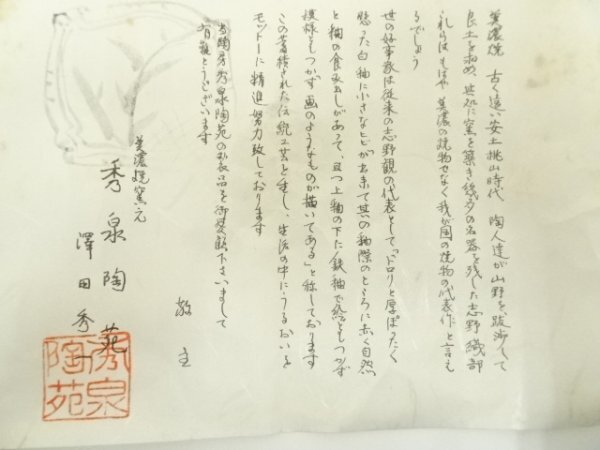 美濃焼 古く遠い安土桃山時代 陶人達が山野を跋渉して
良土を求め 其処に窯を築き幾多の名器を残した志野織部
これらはもはや 美濃の焼物でなく我が国の焼物の代表作と言え
るでしょう
世の好事家は従来の志野観の代表として「ドロリと厚ぼったく
懸った白釉に小さなヒビが出来て其の釉際のところに赤く自然
と釉の食み出しがあって、且つ上釉の下に鉄釉で絵ともつかず
模様ともつかず画のようなものが描いてある」と称しております
この蓄積された伝統工芸を生し、生活の中にうるおいを
モットーに精進努力致しております
当陶房秀泉陶苑のお品を御愛顧下さいまして
有難とうございます
敬主
美濃焼窯元
秀泉陶苑
澤田秀一
秀泉
陶苑